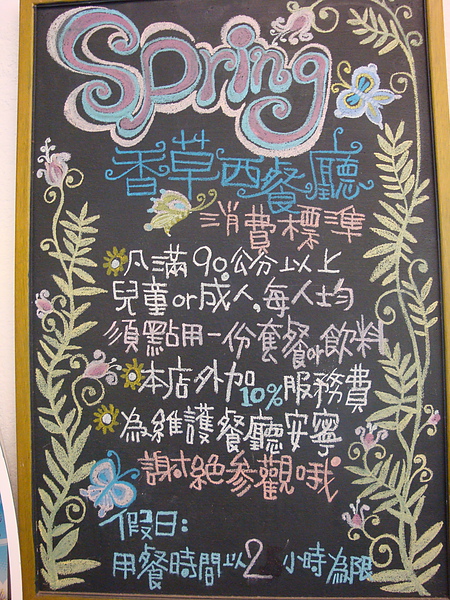 Spring
香草西餐廳
消費標準
凡滿90公分以上
兒童or成人,每人均
須點用一份套餐or飲料
本店外加10%服務費
為維護餐廳安寧
謝絕參觀哦
假日:
用餐時間以2小時為限